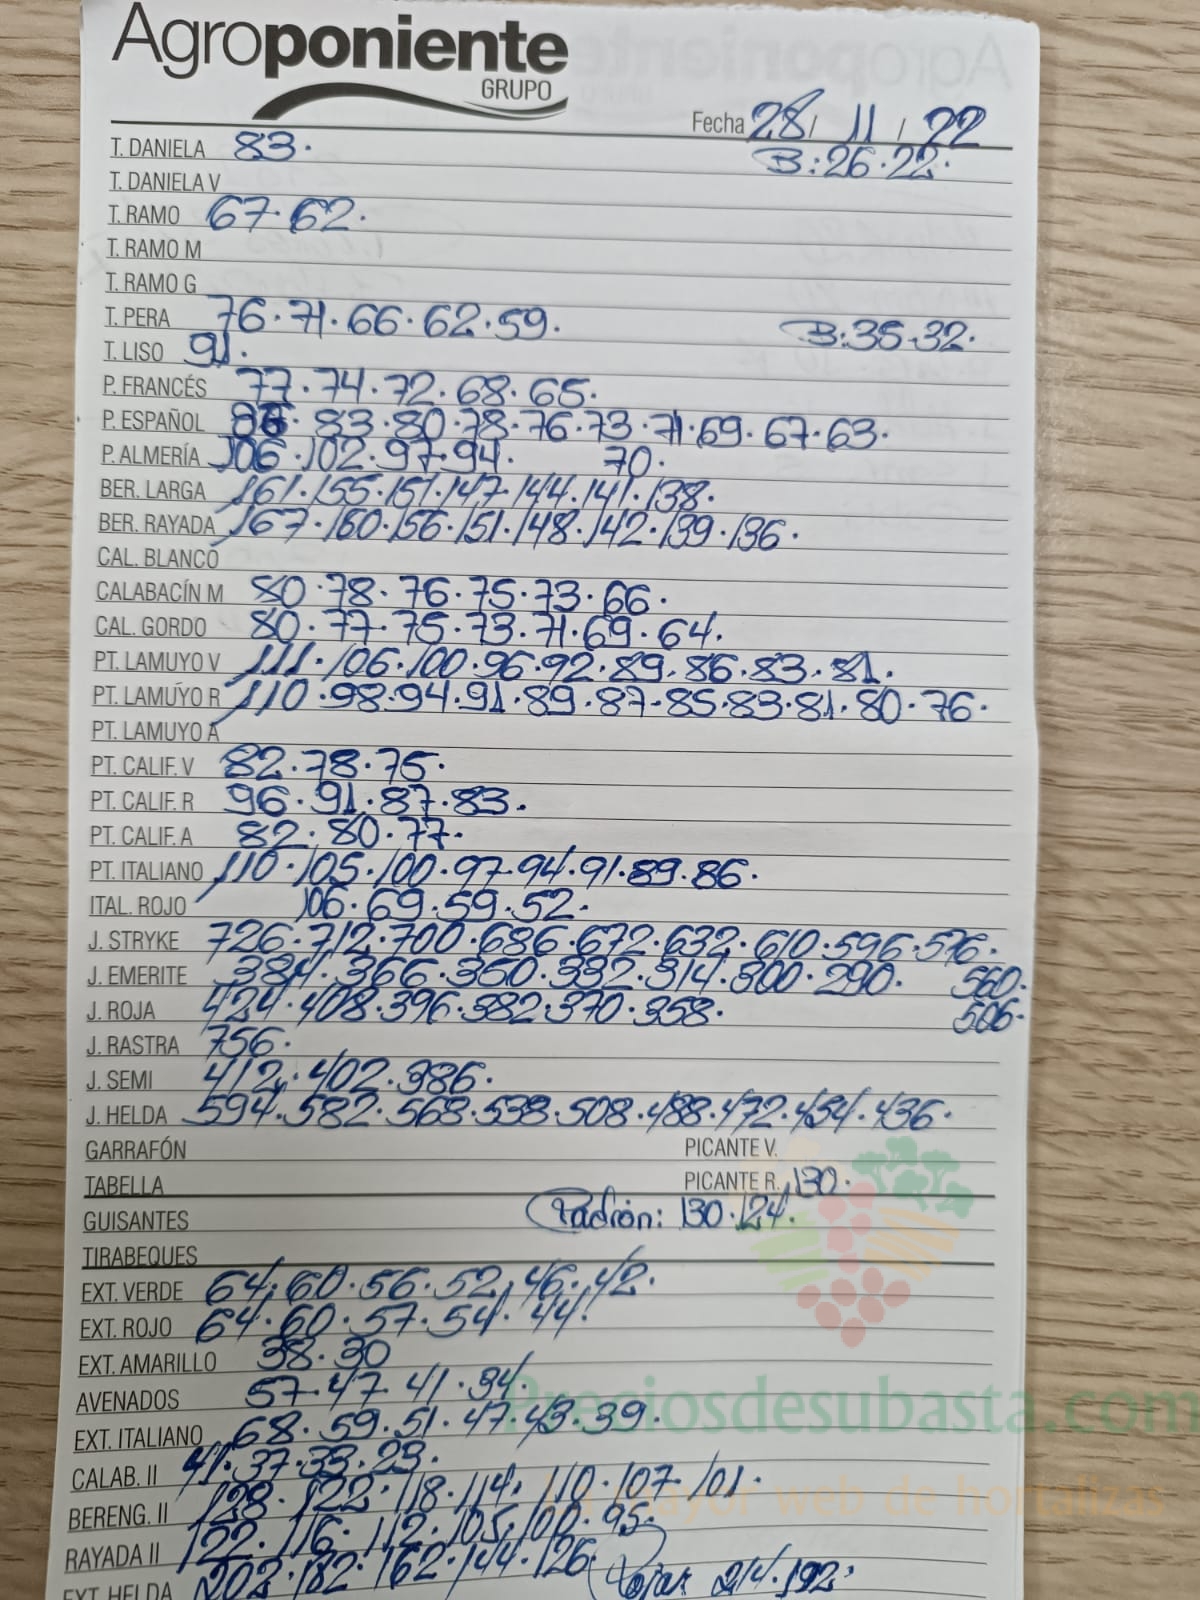 Agroponiente
GRUPO
Fecha 28 / 11 / 22
T. DANIELA 83. B:26.22.
T. DANIELA V
T. RAMO 67.62.
T. RAMO M
T. RAMO G
T. PERA 76.71.66.62.59. B:35.32.
T. LISO 91.
P. FRANCÉS 77.74.72.68.65.
P. ESPAÑOL 83.80.78.76.73.71.69.67.63.
P. ALMERÍA 106.102.97.94. 70.
BER. LARGA 161.155.151.147.144.141.138.
BER. RAYADA 167.160.156.151.148.142.139.136.
CAL. BLANCO
CALABACÍN M 80.78.76.75.73.66.
CAL. GORDO 80.77.75.73.71.69.64.
PT. LAMUYO V 111.106.100.96.92.89.86.83.81.
PT. LAMUYO R 110.98.94.91.89.87.85.83.81.80.76.
PT. LAMUYO A
PT. CALIF. V 82.78.75.
PT. CALIF. R 96.91.87.83.
PT. CALIF. A 82.80.77.
PT. ITALIANO 110.105.100.97.94.91.89.86.
ITAL. ROJO 106.69.59.52.
J. STRYKE 726.712.700.686.672.632.610.596.576.
J. EMERITE 384.366.350.332.314.300.290. 560.
J. ROJA 424.408.396.382.370.358. 506.
J. RASTRA 756.
J. SEMI 412.402.386.
J. HELDA 594.582.568.538.508.488.472.454.436.
GARRAFÓN PICANTE V.
TABELLA PICANTE R. 130.
GUISANTES Padrón: 130.124.
TIRABEQUES
EXT. VERDE 64.60.56.52.46.42.
EXT. ROJO 64.60.57.54.44.
EXT. AMARILLO 38.30
AVENADOS 57.47.41.34.
Preciosdesubasta.com
EXT. ITALIANO 68.59.51.47.43.39.
CALAB. II 41.37.33.23.
BERENG. II 128.122.118.114.110.107.101.
mayor web de hortalizas
RAYADA II 122.116.112.105.100.95.
EXT. HELDA 202.182.162.144.126. Rojas 214.192.